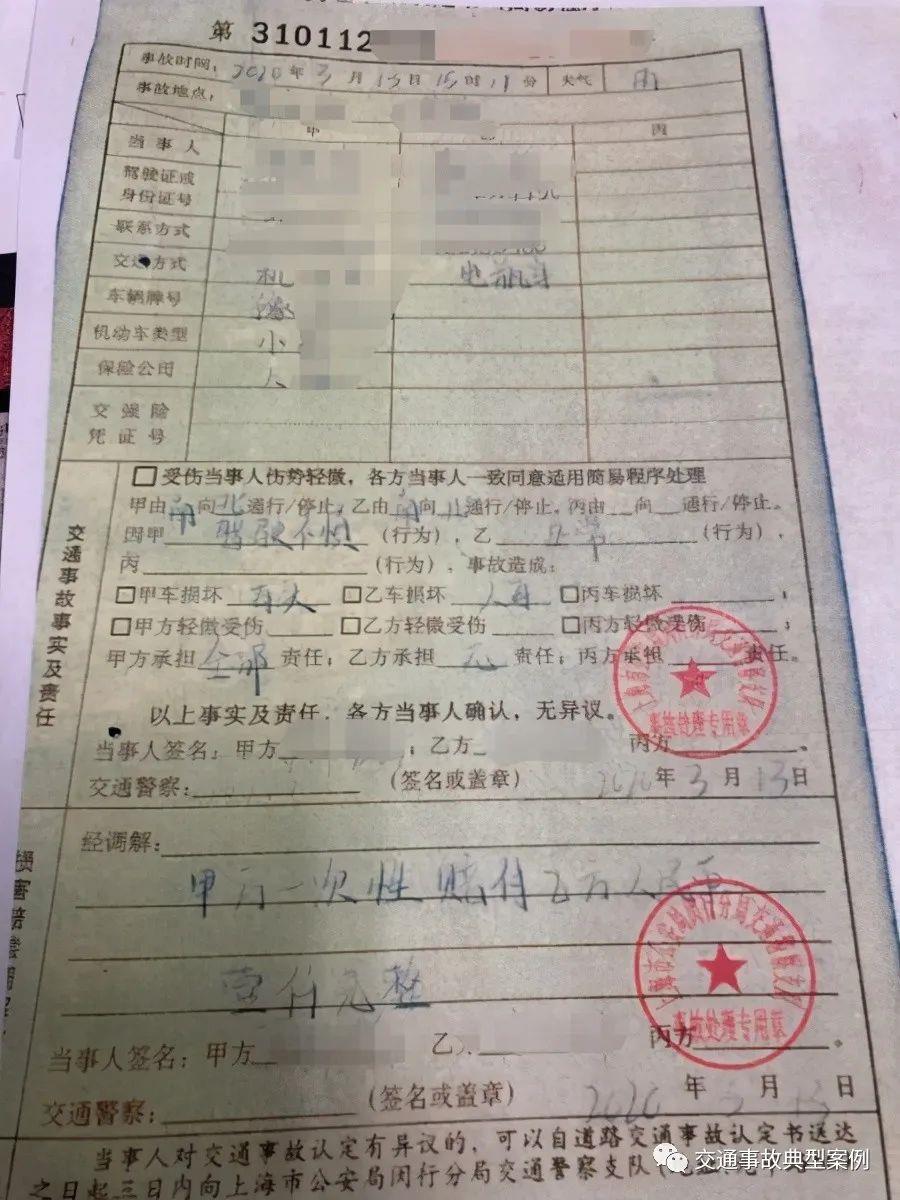 第 310112
事故时间: 2020年3月13日15时11分 天气 雨
事故地点:
甲 乙 丙
当事人
驾驶证或
身份证号
联系方式
交通方式 机 电瓶车
车辆牌号
机动车类型 小
保险公司 人
交强险
凭证号
交通事故事实及责任
□受伤当事人伤势轻微,各方当事人一致同意适用简易程序处理
甲由南向北通行/停止,乙由南向北通行/停止,丙由__向__通行/停止。
因甲 驾驶不慎 (行为),乙 正常 (行为),
丙 (行为),事故造成:
□甲车损坏 车头 □乙车损坏 □丙车损坏 ;
□甲方轻微受伤 □乙方轻微受伤 □丙方轻微受伤 ;
甲方承担 全部 责任;乙方承担 无 责任;丙方承担 责任。
以上事实及责任,各方当事人确认,无异议。
当事人签名:甲方 ;乙方 丙方 。
交通警察: (签名或盖章) 2020年3月13日
事故处理专用章
损害赔偿调解
经调解:
甲方一次性赔付乙方人民币
壹仟元整
上海市公安局闵行分局交通警察支队
事故处理专用章
当事人签名:甲方 乙 丙方 。
交通警察: (签名或盖章) 2020年3月13日
当事人对交通事故认定有异议的,可以自道路交通事故认定书送达
之日起三日内向上海市公安局闵行分局交通警察支队
交通事故典型案例